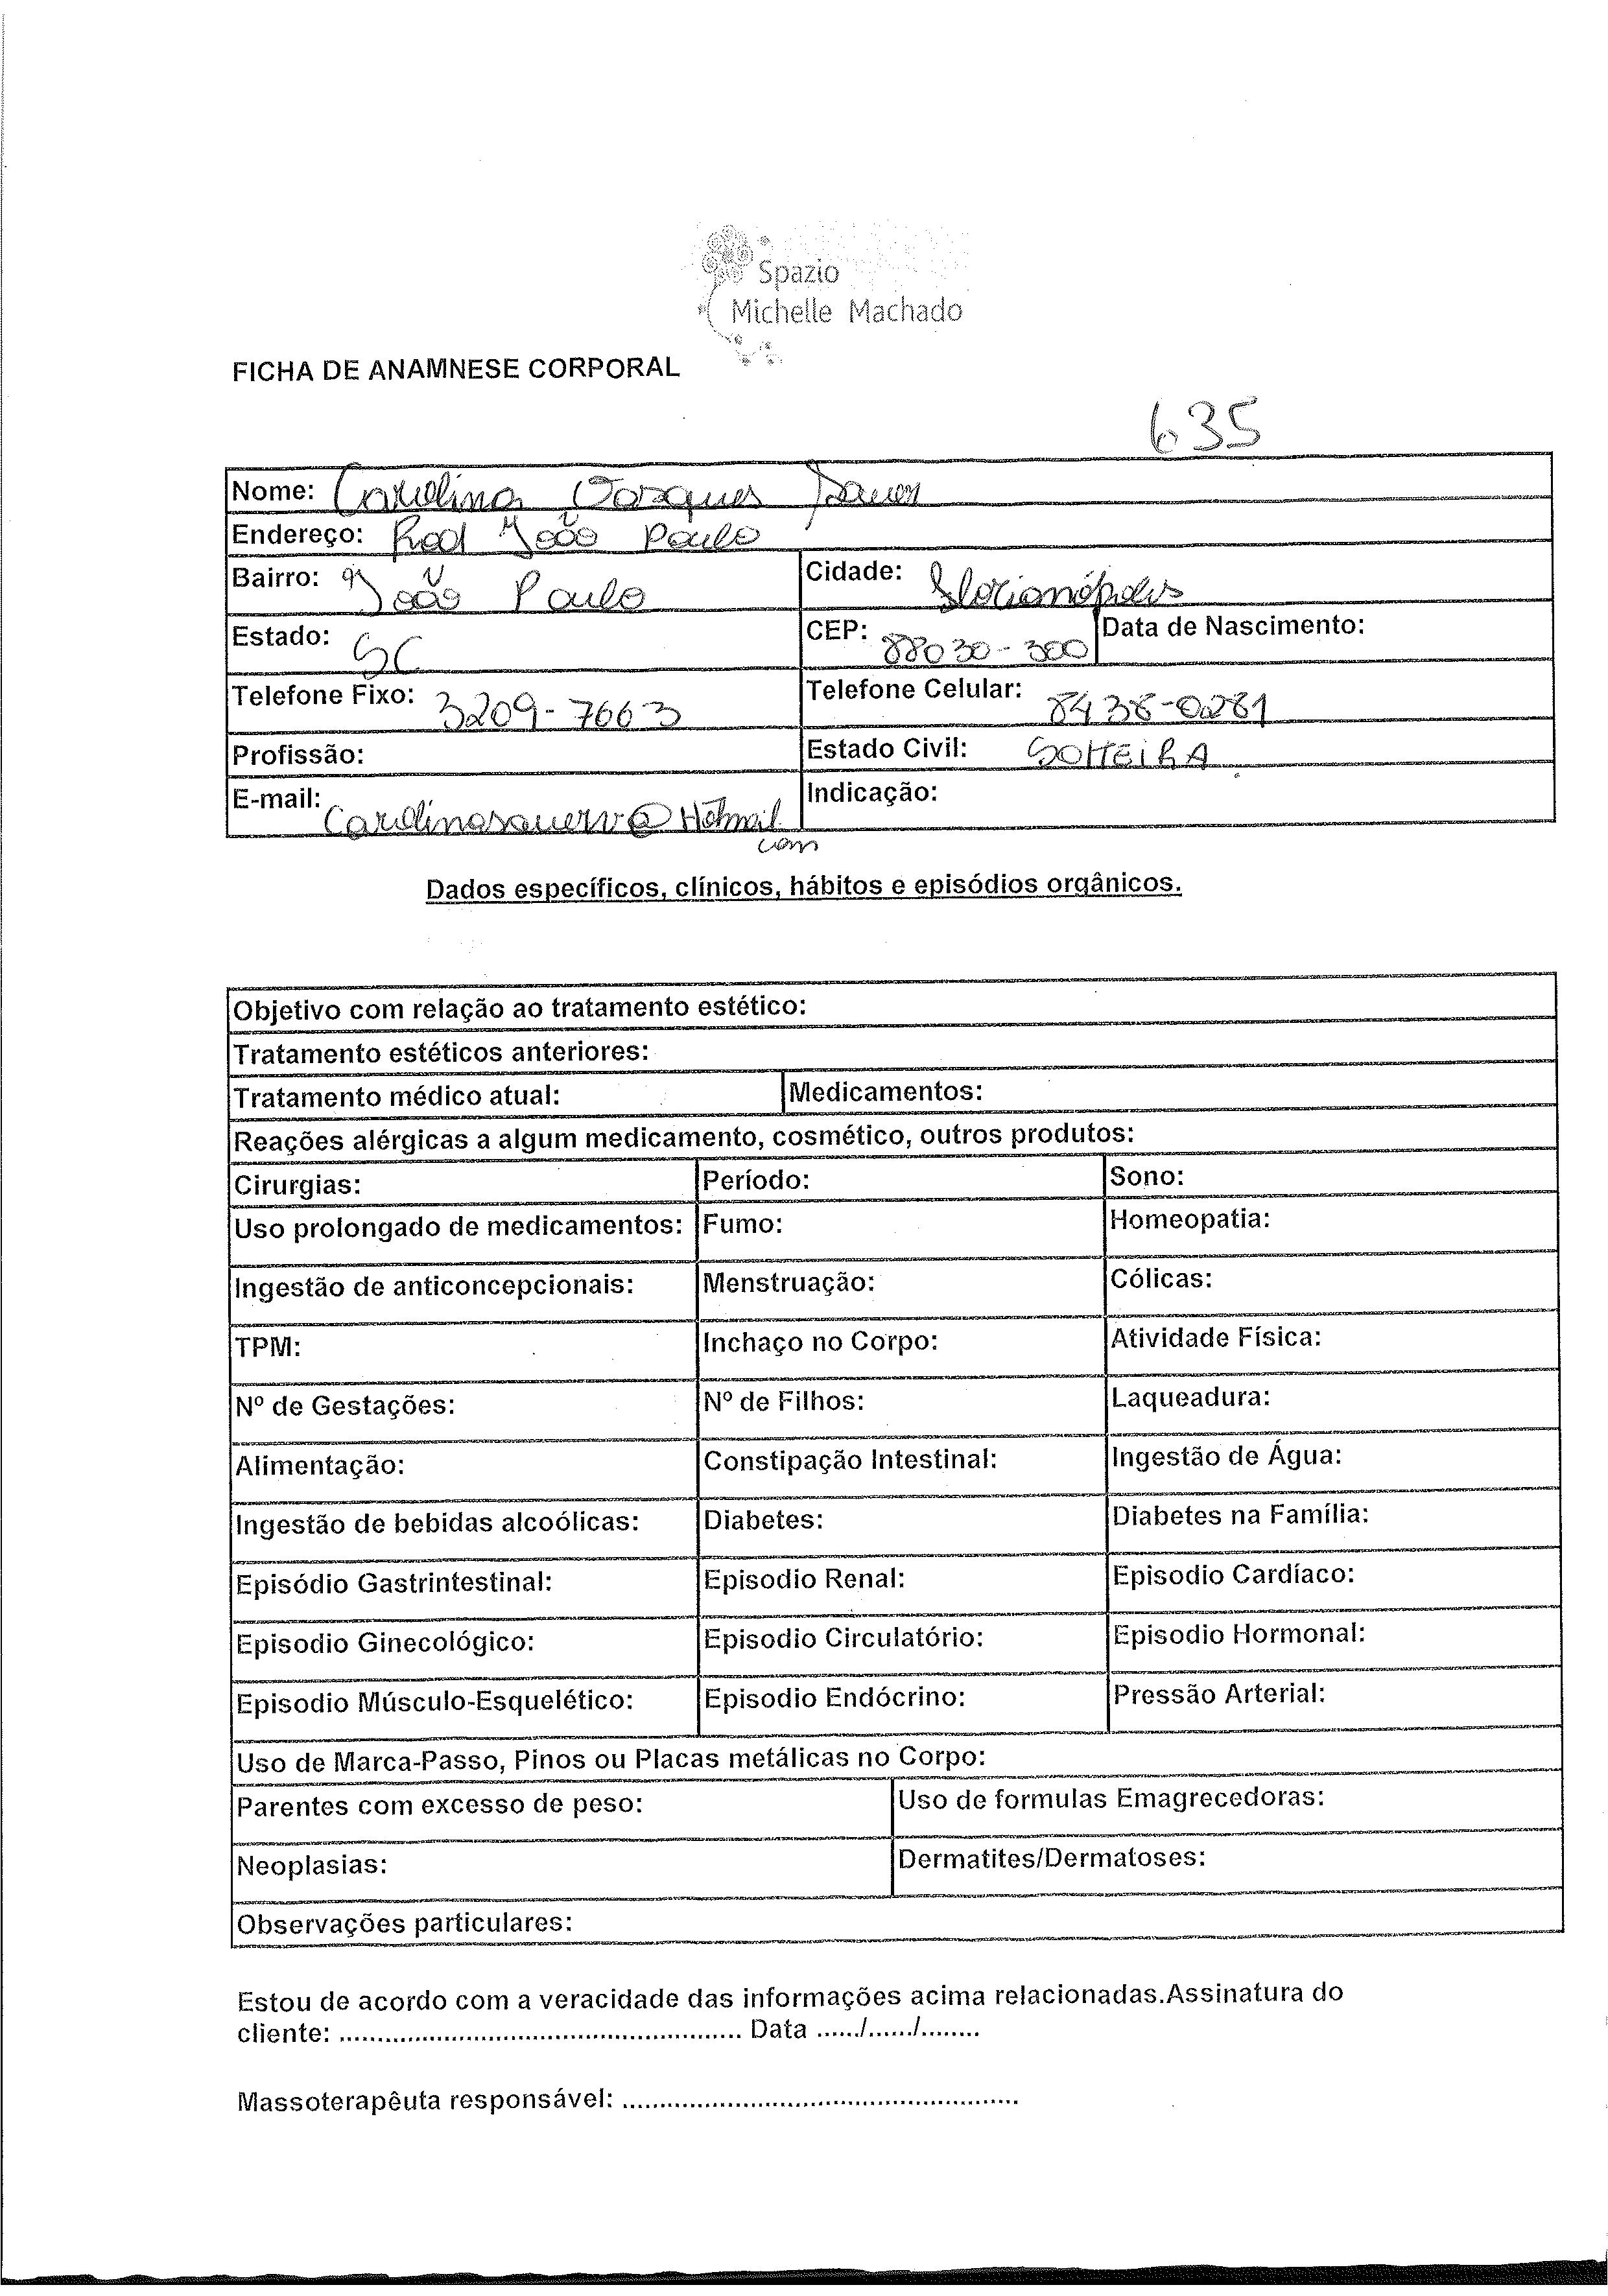 Spazio
Michelle Machado
FICHA DE ANAMNESE CORPORAL
635
Nome: Carolina Vasques
Endereço: Rod João Paulo
Bairro: João Paulo Cidade: Florianópolis
Estado: SC CEP: 88030-300 Data de Nascimento:
Telefone Fixo: 3209-7663 Telefone Celular: 8438-0281
Profissão: Estado Civil: SOLTEIRA
E-mail: Indicação:
com
Dados específicos, clínicos, hábitos e episódios orgânicos.
Objetivo com relação ao tratamento estético:
Tratamento estéticos anteriores:
Tratamento médico atual: Medicamentos:
Reações alérgicas a algum medicamento, cosmético, outros produtos:
Cirurgias: Período: Sono:
Uso prolongado de medicamentos: Fumo: Homeopatia:
Ingestão de anticoncepcionais: Menstruação: Cólicas:
TPM: Inchaço no Corpo: Atividade Física:
Nº de Gestações: Nº de Filhos: Laqueadura:
Alimentação: Constipação Intestinal: Ingestão de Água:
Ingestão de bebidas alcoólicas: Diabetes: Diabetes na Família:
Episódio Gastrintestinal: Episodio Renal: Episodio Cardíaco:
Episodio Ginecológico: Episodio Circulatório: Episodio Hormonal:
Episodio Músculo-Esquelético: Episodio Endócrino: Pressão Arterial:
Uso de Marca-Passo, Pinos ou Placas metálicas no Corpo:
Parentes com excesso de peso: Uso de formulas Emagrecedoras:
Neoplasias: Dermatites/Dermatoses:
Observações particulares:
Estou de acordo com a veracidade das informações acima relacionadas.Assinatura do
cliente: .................................................... Data ....../....../........
Massoterapêuta responsável: ....................................................